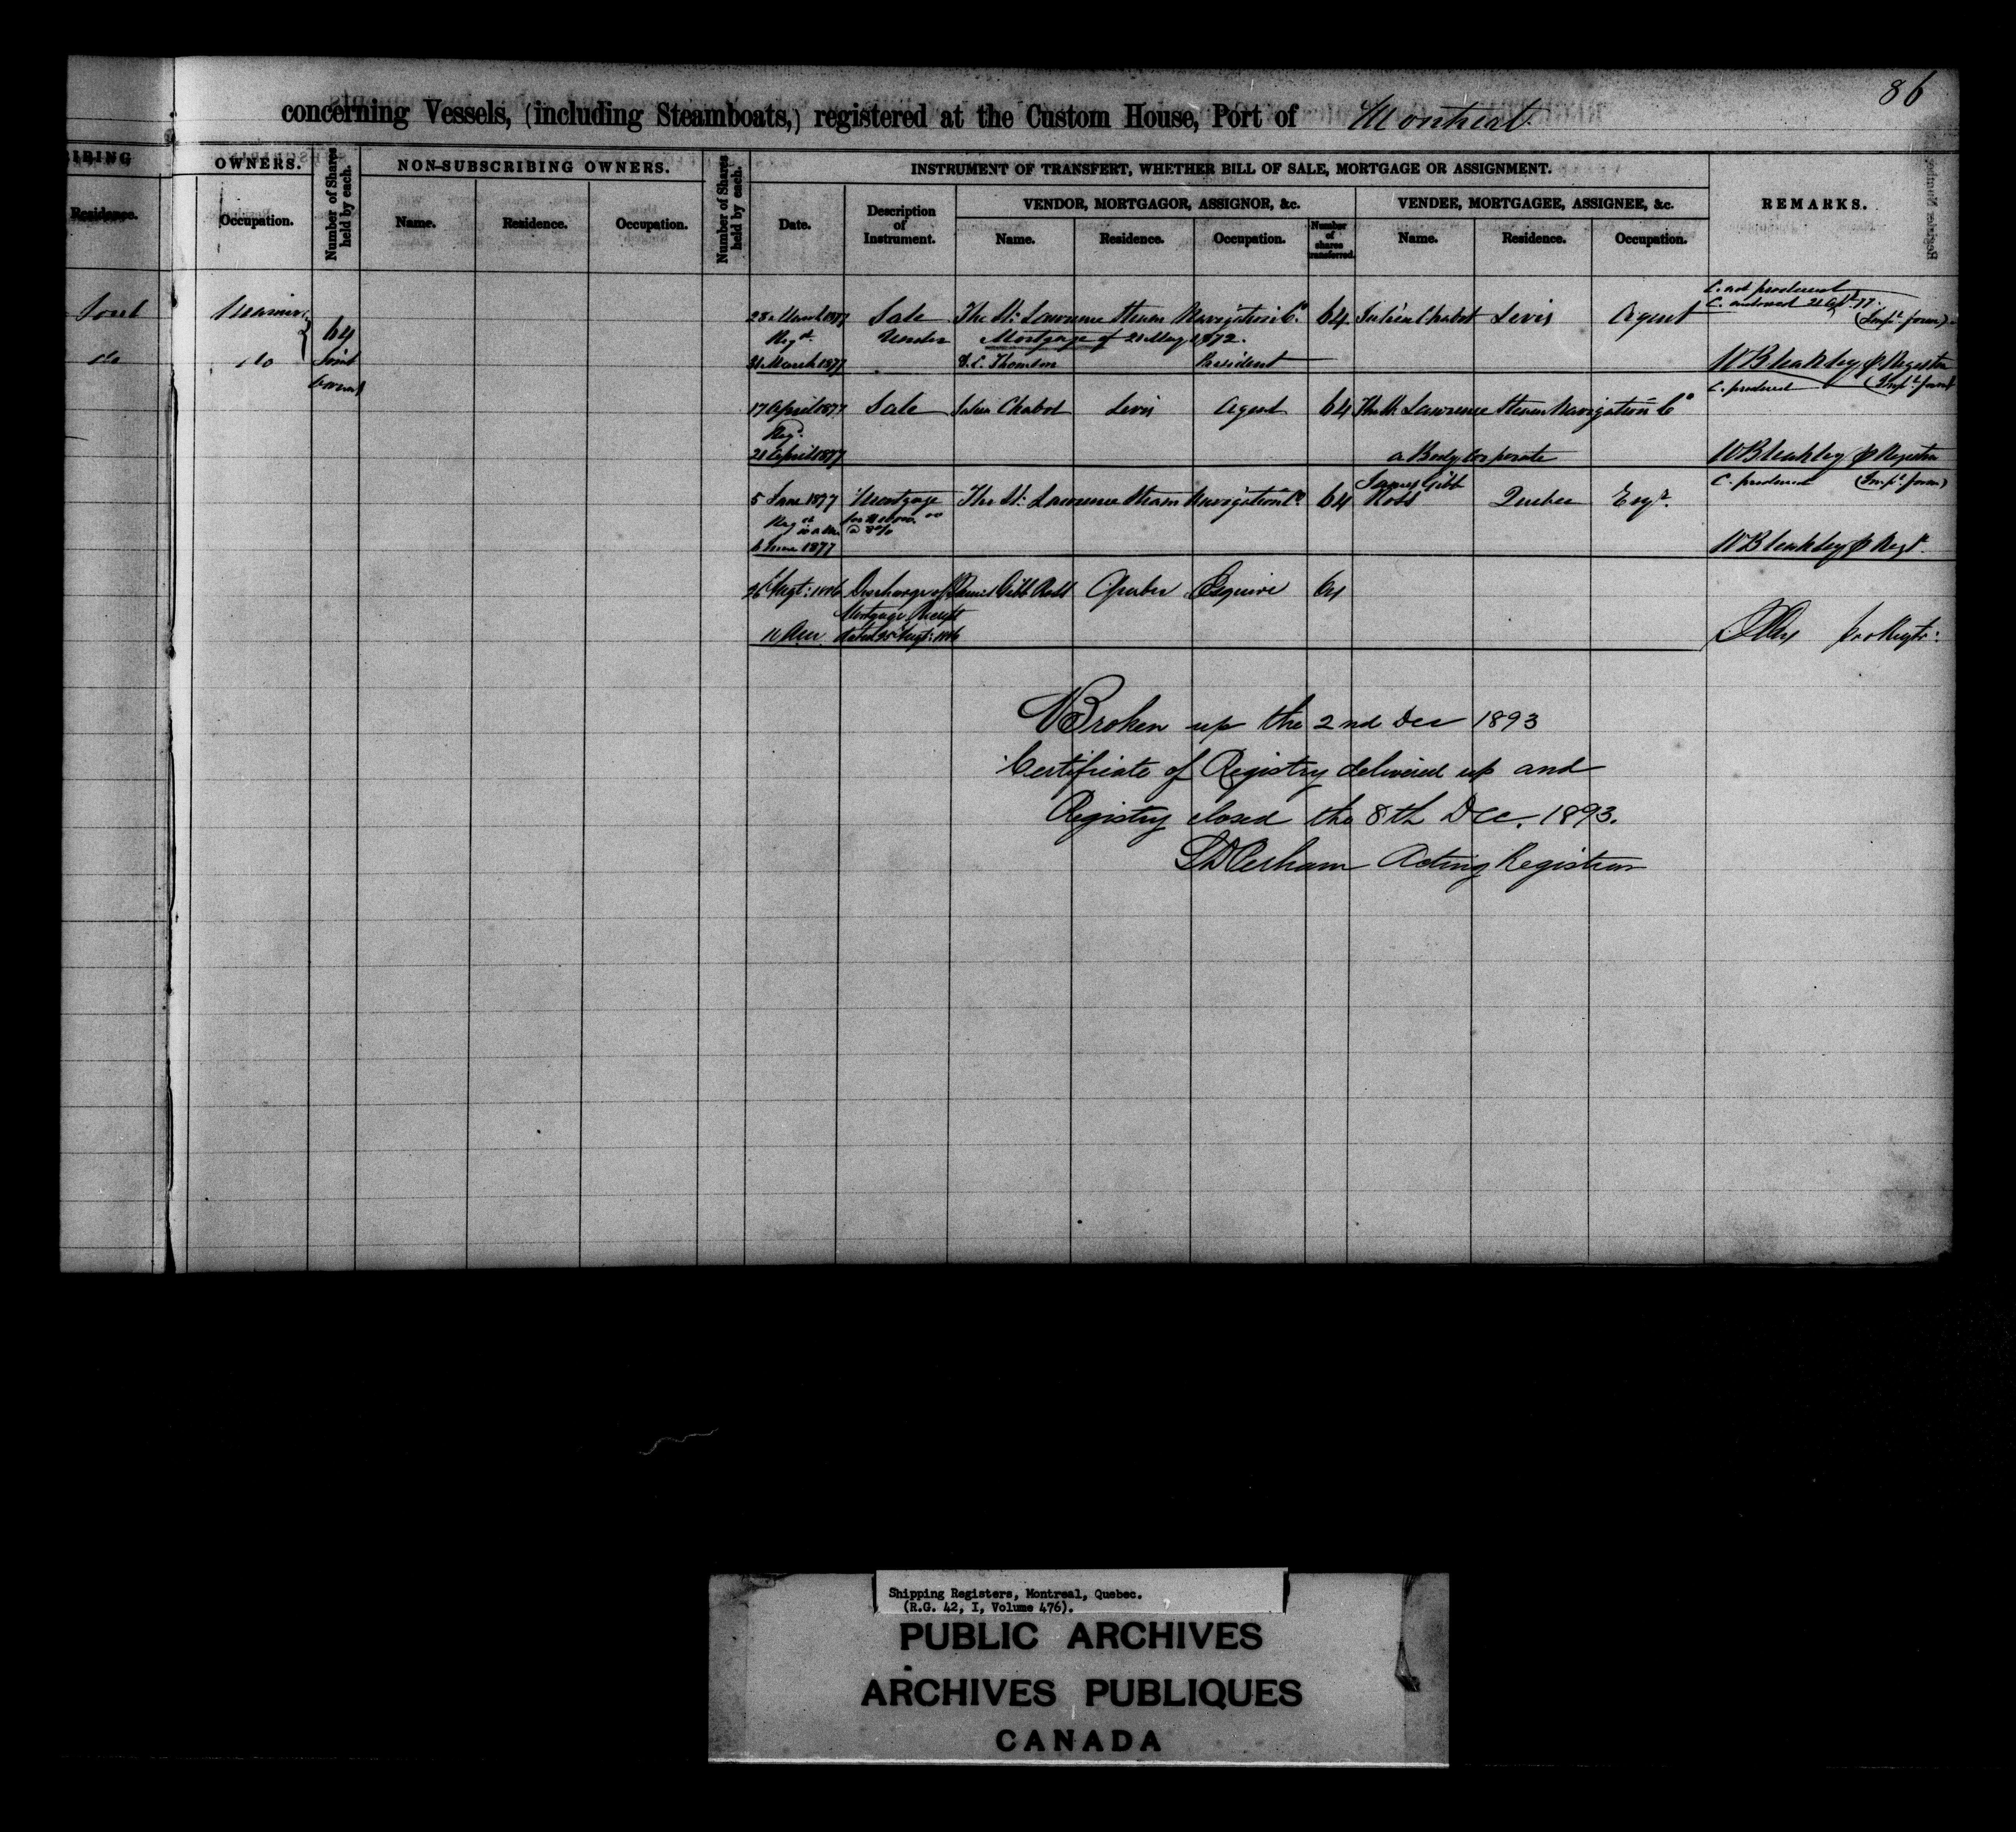 86
concerning Vessels, (including Steamboats,) registered at the Custom House, Port of Montreal
IBING OWNERS. Number of Shares held by each. NON-SUBSCRIBING OWNERS. Number of Shares held by each. INSTRUMENT OF TRANSFERT, WHETHER BILL OF SALE, MORTGAGE OR ASSIGNMENT. REMARKS.
VENDOR, MORTGAGOR, ASSIGNOR, &c. VENDEE, MORTGAGEE, ASSIGNEE, &c.
Residence. Occupation. Name. Residence. Occupation. Date. Description of Instrument. Name. Residence. Occupation. Number of shares transferred. Name. Residence. Occupation.
C. not produced
C. endorsed 21 Apl. 77.
Sorel 28 March 1877 Sale The St. Lawrence Steam Navigation Co. 64 Julien Chabot Levis Agent
64 Regd. Under Mortgage of 21 May 1872.
do do Joint 31 March 1877 President W Bleakley Registrar
C. produced
17 April 1877 Sale Julien Chabot Levis Agent 64 The St. Lawrence Steam Navigation Co
Regd.
21 April 1877 a Body Corporate W Bleakley Registrar
C. produced
5 June 1877 Mortgage The St. Lawrence Steam Navigation Co. 64 James Gibb Ross Quebec Esqr.
Regd @ 8%
6 June 1877 W Bleakley Regr.
Discharge of James Gibb Ross Quebec Esquire 64
Mortgage Receipt
11 Am dated
Broken up the 2nd Dec 1893
Certificate of Registry delivered up and
Registry closed the 8th Dec. 1893.
Acting Registrar
Shipping Registers, Montreal, Quebec.
(R.G. 42, I, Volume 476).
PUBLIC ARCHIVES
ARCHIVES PUBLIQUES
CANADA